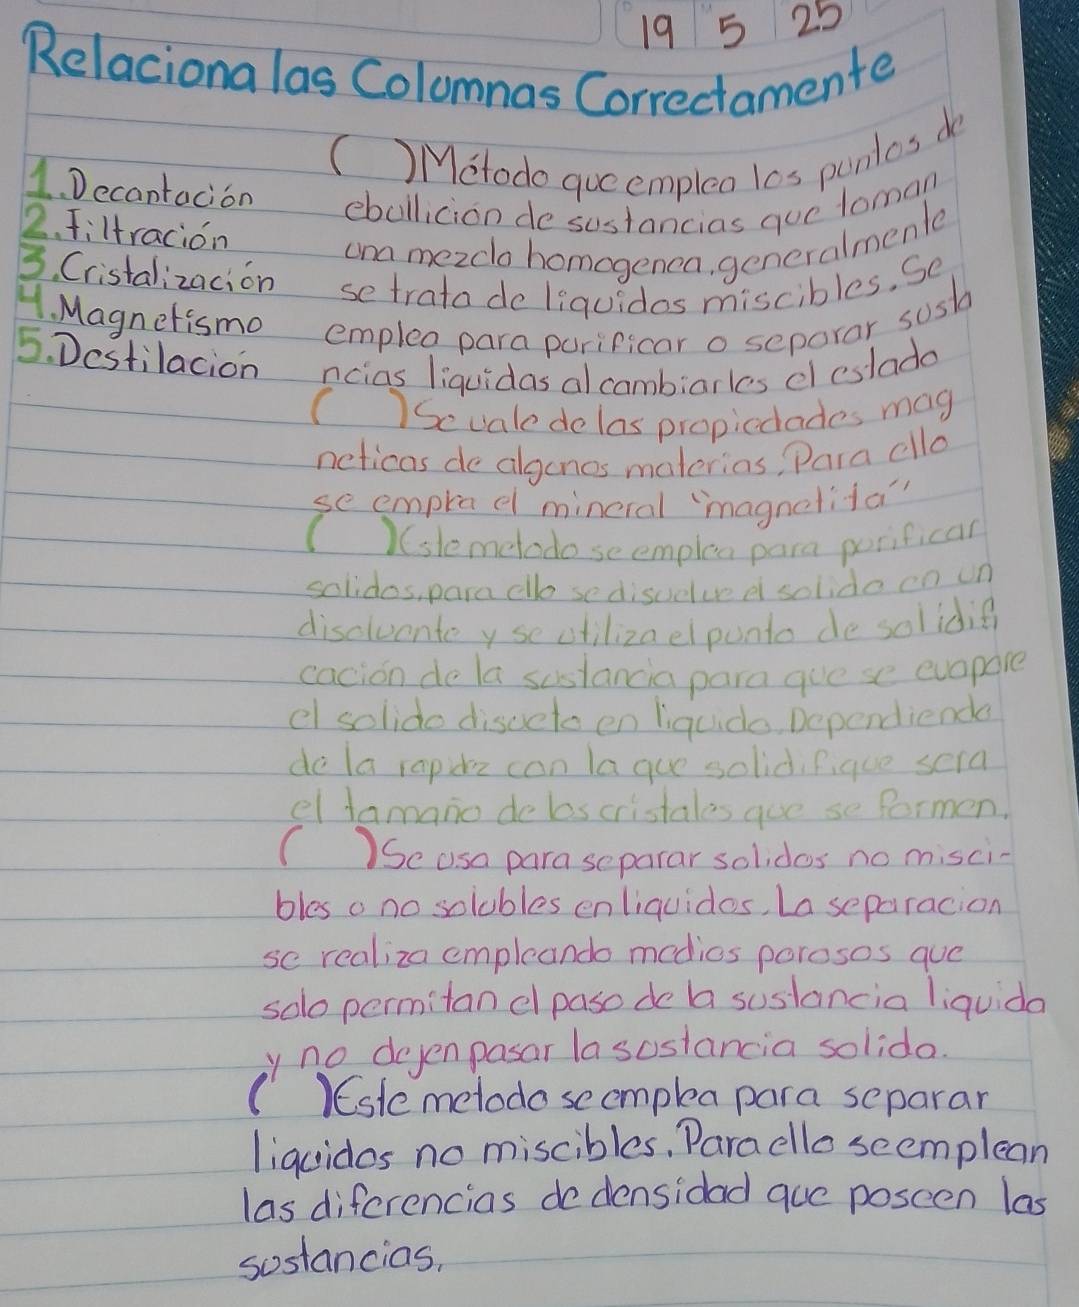 19 5 25
Relaciona las Columnas Correctamente
1. Decantación
2. Filtración
3. Cristalización
4. Magnetismo
5. Destilación
( ) Método que emplea los puntos de
ebullición de sustancias que toman
una mezcla homogenea, generalmente
se trata de liquidos miscibles. Se
emplea para purificar o separar susta
ncias liquidas al cambiarles el estado
( ) Se vale de las propiedades mag
neticas de algunos materias, Para ello
se emplea el mineral "magnetita"
( ) Este metodo se emplea para purificar
solidos, para ello se disuelve el solido en un
disolvente y se utiliza el punto de solidifi
cación de la sustancia para que se evapore
el solido disuelto en liquido. Dependiendo
de la rapidez con la que solidifique sera
el tamaño de los cristales que se formen.
( ) Se usa para separar solidos no misci-
bles o no solubles en liquidos. La separacion
se realiza empleando medios porosos que
solo permitan el paso de la sustancia liquida
y no dejen pasar la sustancia solida.
( ) Este metodo se emplea para separar
liquidos no miscibles. Para ello se emplean
las diferencias de densidad que poseen las
sustancias.